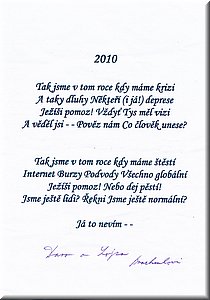 2010
Tak jsme v tom roce kdy máme krizi
A taky dluhy Někteří (i já!) deprese
Ježíši pomoz! Vždyť Tys měl vizi
A věděl jsi - - Pověz nám Co člověk unese?
Tak jsme v tom roce kdy máme štěstí
Internet Burzy Podvody Všechno globální
Ježíši pomoz! Nebo dej pěstí!
Jsme ještě lidi? Řekni Jsme ještě normální?
Já to nevím - -
a